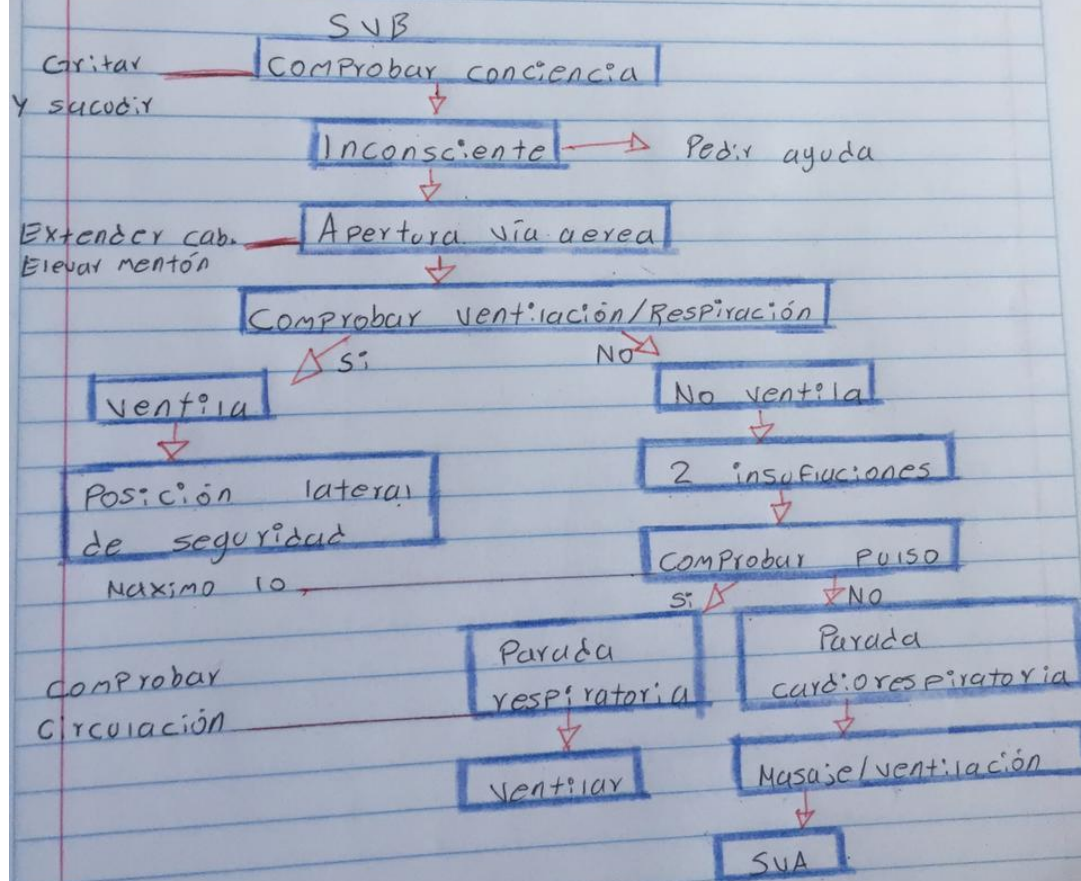 SVB
Gritar
y sucodir
Comprobar conciencia
Inconsciente
Pedir ayuda
Extender cab.
Elevar mentón
Apertura vía aerea
Comprobar ventilación/Respiración
Si
No
Ventila
No ventila
Posición lateral
de seguridad
2 insuflaciones
Maximo 10
Comprobar pulso
Si
No
Comprobar
circulación
Parada
respiratoria
Parada
cardiorespiratoria
Ventilar
Masaje/ventilación
SVA